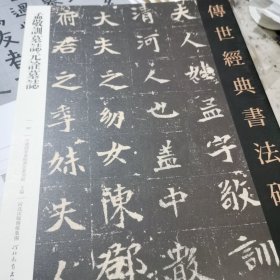 傳世經典書法碑
夫人姓孟字敬訓
清河人也蓋中散
大夫之幼女陳郡
府君之季妹夫人
孟敬訓墓誌 元詮墓誌